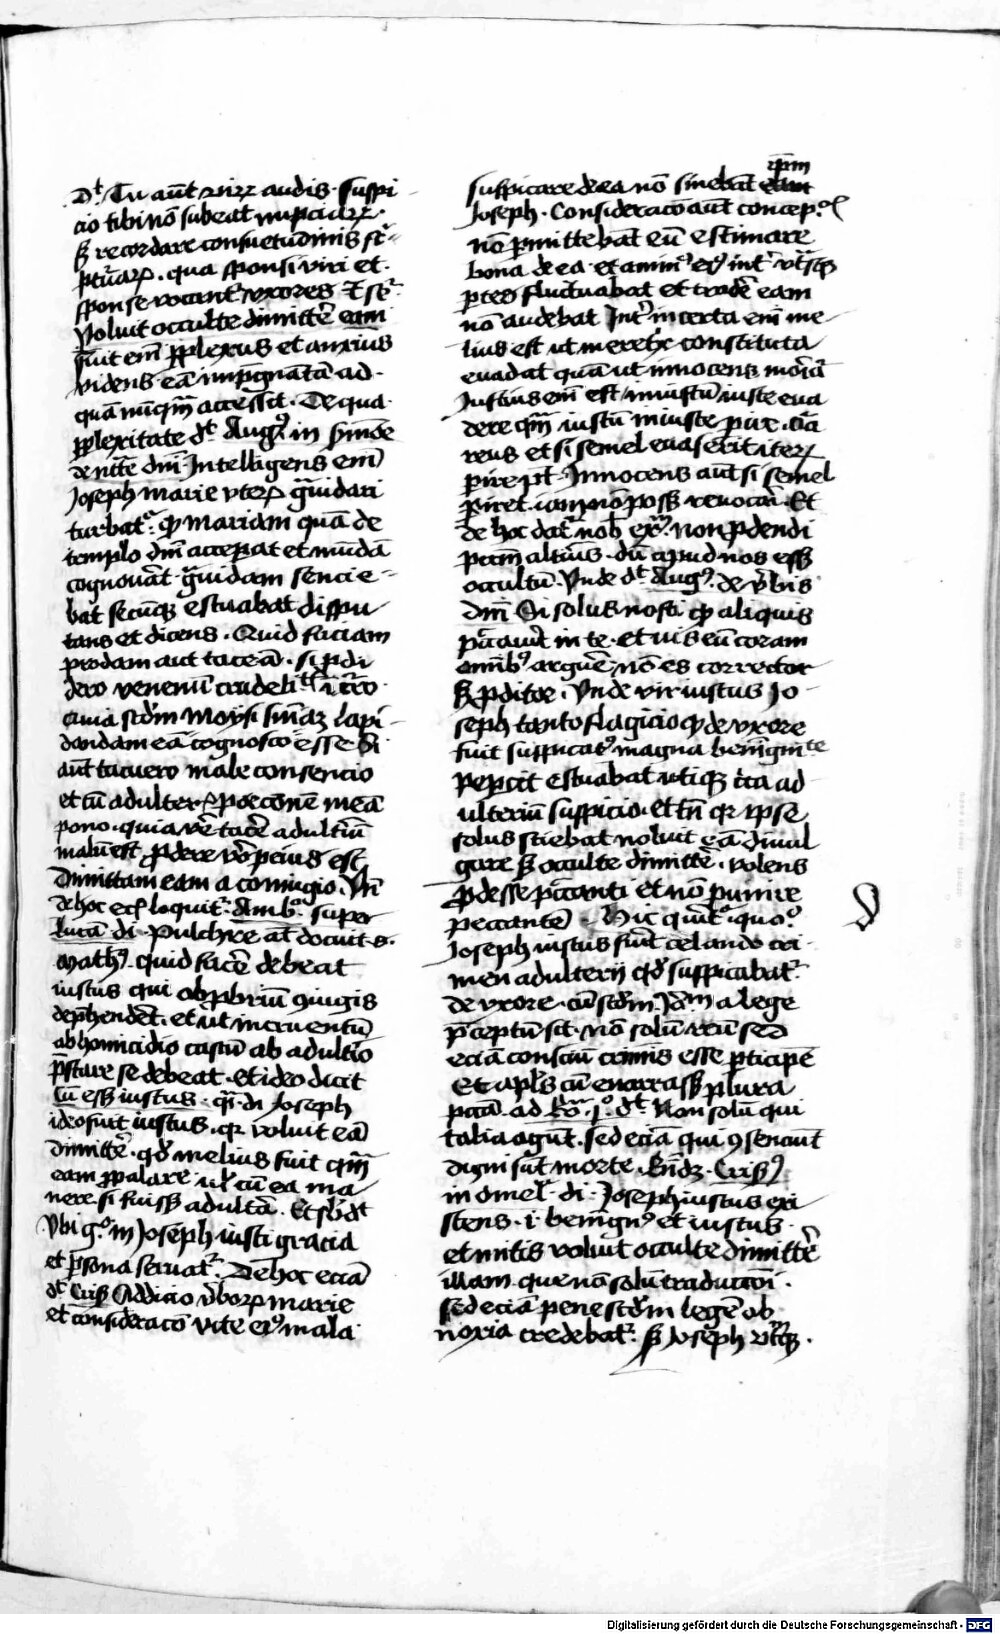 dt Tu aūt viʒ audis suspi
cio tibi nō subeat nupciaʒ
sʒ recordare consuetudinis scʳ
pturaꝝ. qua sponsi viri et
sponse vocantʳ uxores
Voluit occulte dimittēʳ eam
fuit em̄ ꝑplexus et anxius
videns eā inp̄gnatā ad
quā nūq̄m accessit. De qua
ꝑplexitate dt Augꝰ in sermōe
de nāte dm̄i Intelligens em̄
Joseph marie uteꝝ gͣuidari
turbatʳ. ꝙ mariam quā de
templo dm̄i acceperat et nundā
cognouāt gͣuidam sencie
bat secūqʒ estuabat dispu
tans et dicens. Quid faciam
prodam aut taceā. si ꝓdi
dero venenū crudeli
quia scd̄m Moysi sn̄iaʒ lapi
dandam eā cognosco esse Si
aūt tacuero male consencio
et cū adulteris porcōnem meā
pono. quia vē tacēʳ adult̄iū
malū est ꝓdere vō peius est
Dimittam eam a coniugio. Vn̄
de hoc eciā loquitʳ Ambꝰ. super
lucā di. Pulchre at docuit s.
Mathꝰ quid facēʳ debeat
iustus qui obꝓbriū ꝯiugis
dep̄hendeēt. et ut incruentū
ab homicidio castū ab adult̄io
p̄stare se debeat. et ideo dicit
Cū essʒ iustus. qͣi. di. Joseph
ideo fuit iustus. qʳ voluit eā
dimittēʳ. qd melius fuit qm̄
eam ꝓpalare ul cū ea ma
nere si fuissʒ adultā. Et sbdt
Vbi gͦ in Joseph iusti gracia
et ꝑsona seruatʳ. De hoc eciā
dt Cris Addicio v̄boꝝ marie
et consideracō vite eiꝰ mala
suspicare de ea nō sinebat eam ip̄m
Joseph. Consideracō aūt concepcͦis
nō ꝑmittebāt eū estimare
bona de ea. et animꝰ eiꝰ intʳ utʳsqʒ
ꝑtes fluctuabat et tradēʳ eam
nō audebat Intʳ incerta em̄ me
lius est ut meretʳx constituta
euadat quā ut innocens moriāʳ
Justius em̄ est iniustū iuste eua
dere qm̄ iustū iniuste ꝑire. qͣa
reus et si semel euaserit iteꝝ
ꝑire pt. Innocens aūt si semel
ꝑiret iam nō possʒ reuocari. Et
de hoc datʳ nob ex̄m non ꝓdendi
pctm̄ altius. dū apud nos essʒ
occultū. Vnde dt Augꝰ. de v̄bis
dm̄i Si solus nosti ꝙ aliquis
pcͨauit in te. et uis eū coram
omībꝰ arguēʳ nō es corrector
sʒ ꝓditor. Vnde vir iustus Jo
seph tanto flagicio qd de uxore
fuit suspicatꝰ magna benignite
Pepercit estuabat utiqʒ circa ad
ulteriū suspicio. et tn̄ qʳ ipse
solus sciebat noluit eā diuul
gare sʒ occulte dimittēʳ. volens
ꝓdesse pcͨanti et nō punire
peccantē. Hic queritʳ. quoͦ
Joseph iustus fuit celando cri
men adulterij qd suspicabatʳ
de uxore. cū scd̄m Jdm̄ a lege
p̄ceptū sit. nō solū reū sed
eciā consciū criminis esse ꝑticipē
Et apls̄ cū enarrassʒ plura
pctā. ad Roͫ. jͦ. dt Non solū qui
talia agūt. sed eciā qui ꝯsenciūt
digni sūt morte. Rn̄dʒ. Crisꝰ
in omel. di. Joseph iustus exi
stens. i. benignꝰ et iustus.
et mitis voluit occulte dimittēʳ
illam. que nō solū traduccōi.
sed eciā pene scd̄m legē ob
noxia credebatʳ. sʒ Joseph utiqʒ.
Digitalisierung gefördert durch die Deutsche Forschungsgemeinschaft - DFG